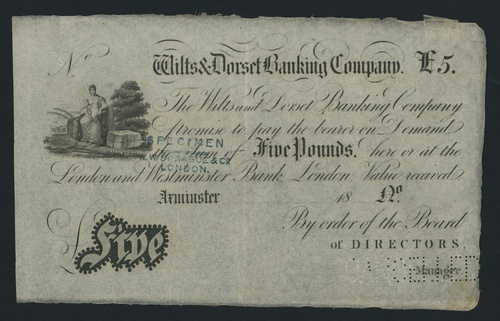 No
Wilts & Dorset Banking Company. £5.
The Wilts and Dorset Banking Company
promise to pay the bearer on Demand
SPECIMEN
of Five Pounds, here or at the
W.W. SPRAGUE & Co
LONDON.
London and Westminster Bank, London. Value received
Arminster 18 No.
By order of the Board
£ Five
OF DIRECTORS
Manager